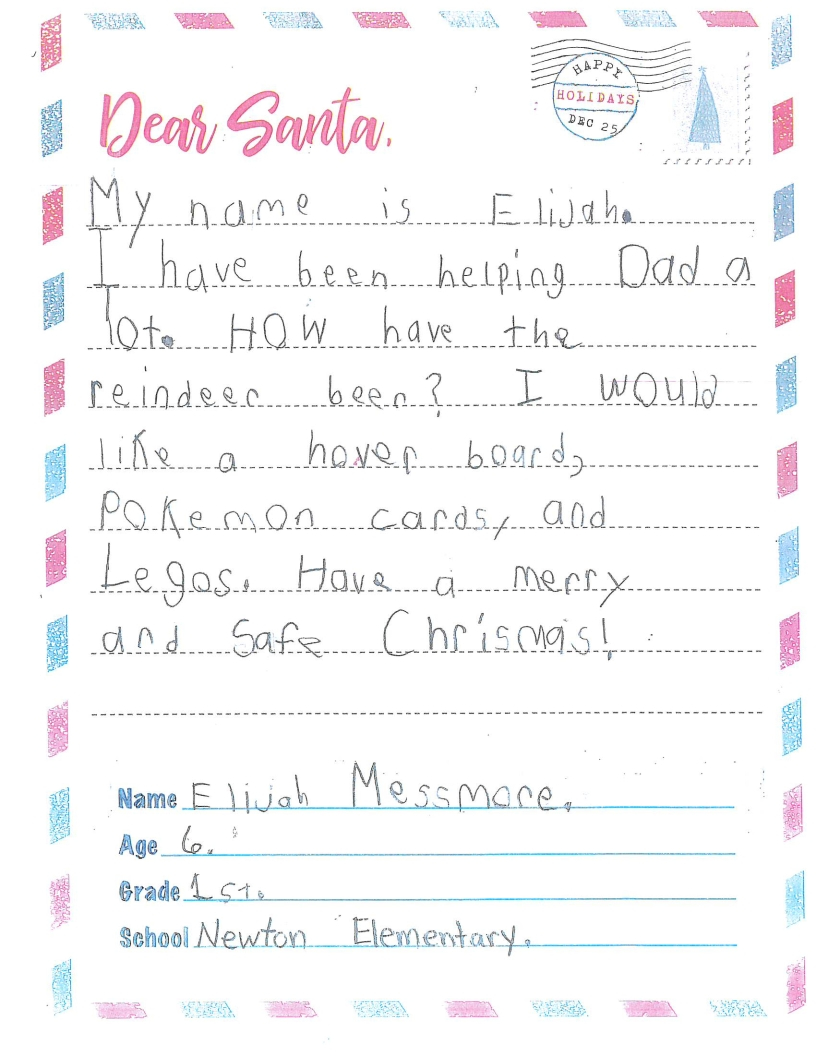 HAPPY
HOLIDAYS
DEC 25
Dear Santa,
My name is Elijah.
I have been helping Dad a
lot. HOW have the
reindeer been? I WOUld
like a hover board,
POKemon cards, and
Legos. Have a merry
and Safe Chrismas!
Name Elijah Messmore.
Age 6.
Grade 1st.
School Newton Elementary.